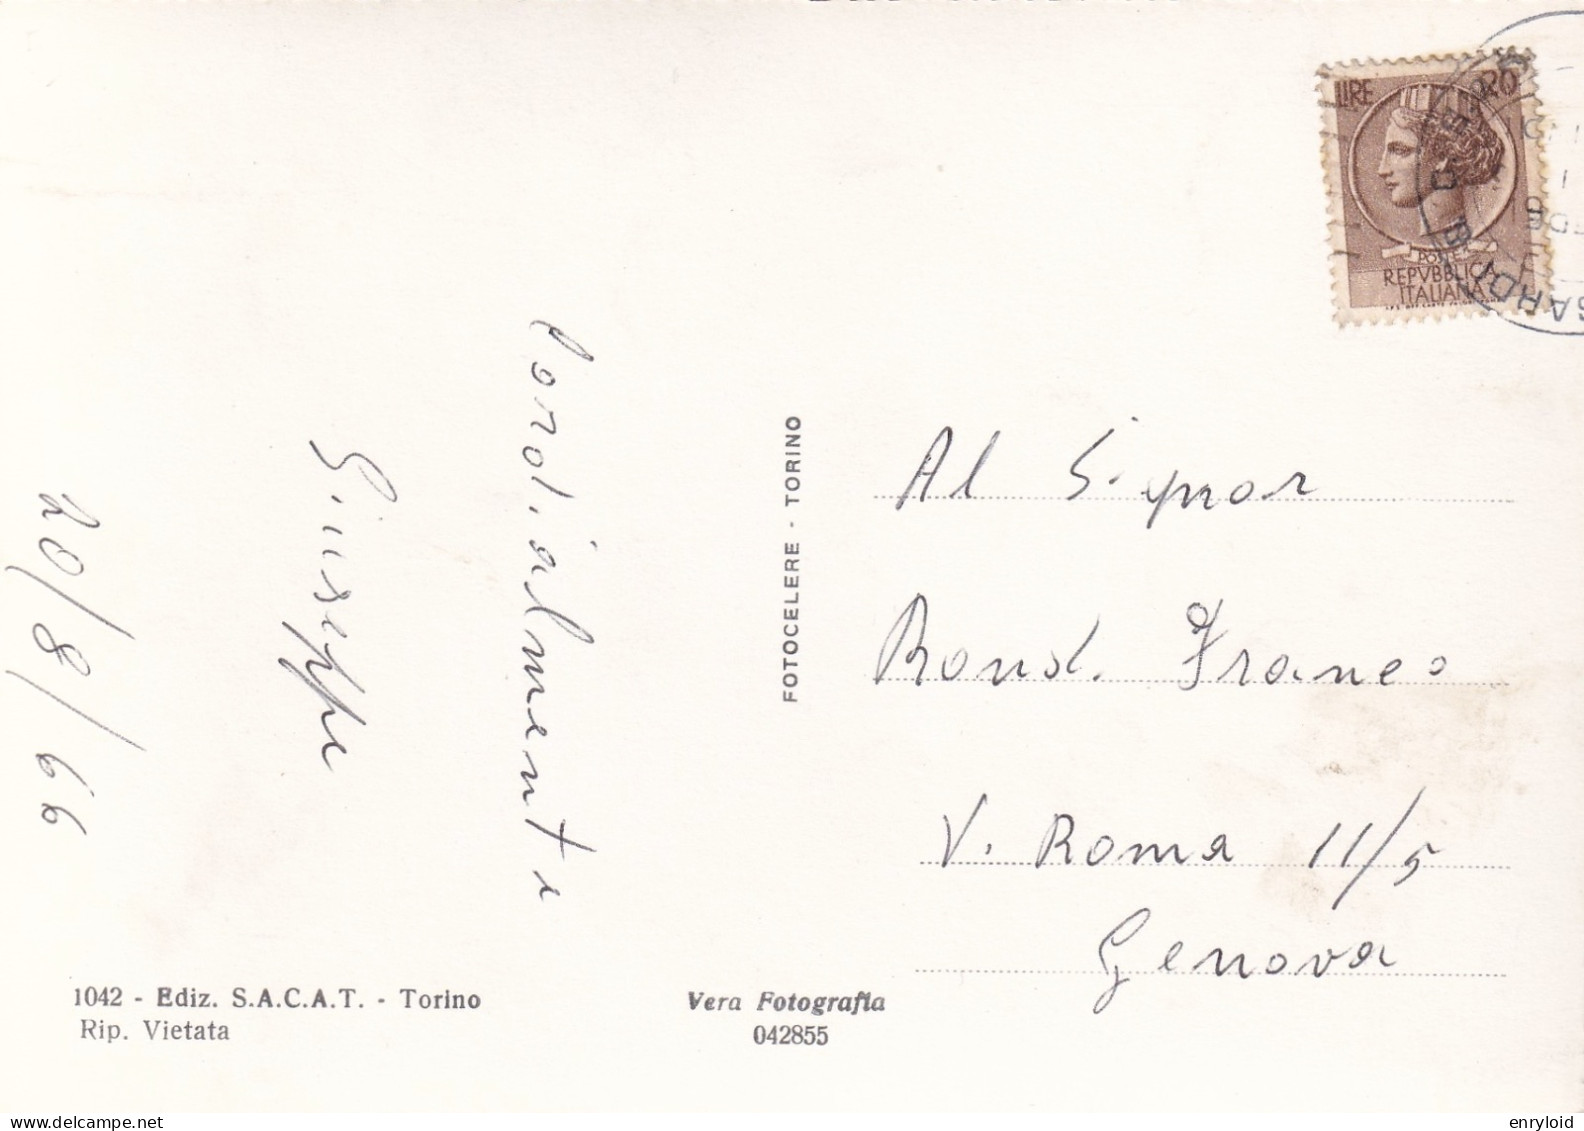 Cordialmente
Giuseppe
20/8/66
1042 - Ediz. S.A.C.A.T. - Torino
Rip. Vietata
Vera Fotografia
042855
FOTOCELERE - TORINO
LIRE 20
POSTE
REPVBBLICA
ITALIANA
Al Signor
Rond. Franco
V. Roma 11/5
Genova
enryloid
delcampe.net